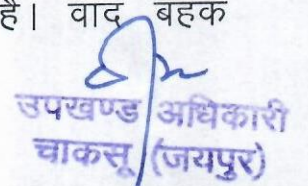 है। वाद बहक
उपखण्ड अधिकारी
चाकसू (जयपुर)